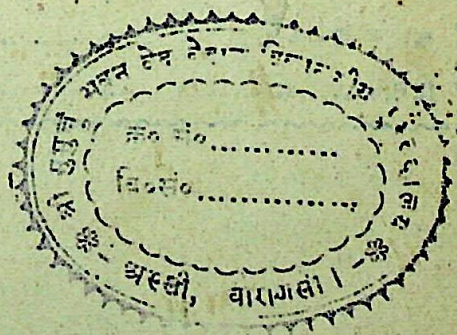 श्री मुमुक्षु भवन वेद वेदाङ्ग पुस्तकालय
क्र० सं०............
वि०सं०................
❊ अस्सी, वाराणसी । ❊